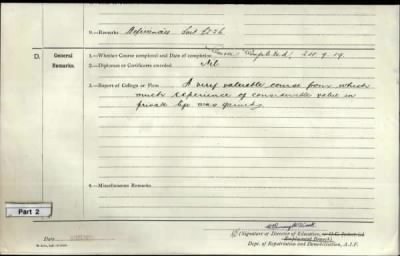 9.—Remarks
D. General Remarks.
1.—Whether Course completed and Date of completion Course Completed, 24.9.19.
2.—Diplomas or Certificates awarded. Nil
3.—Report of College or Firm A very valuable course from which
much experience of considerable value in
private life was gained.
4.—Miscellaneous Remarks.
Part 2
Date
(Signature or Director of Education,
Dept. of Repatriation and Demobilization, A.I.F.